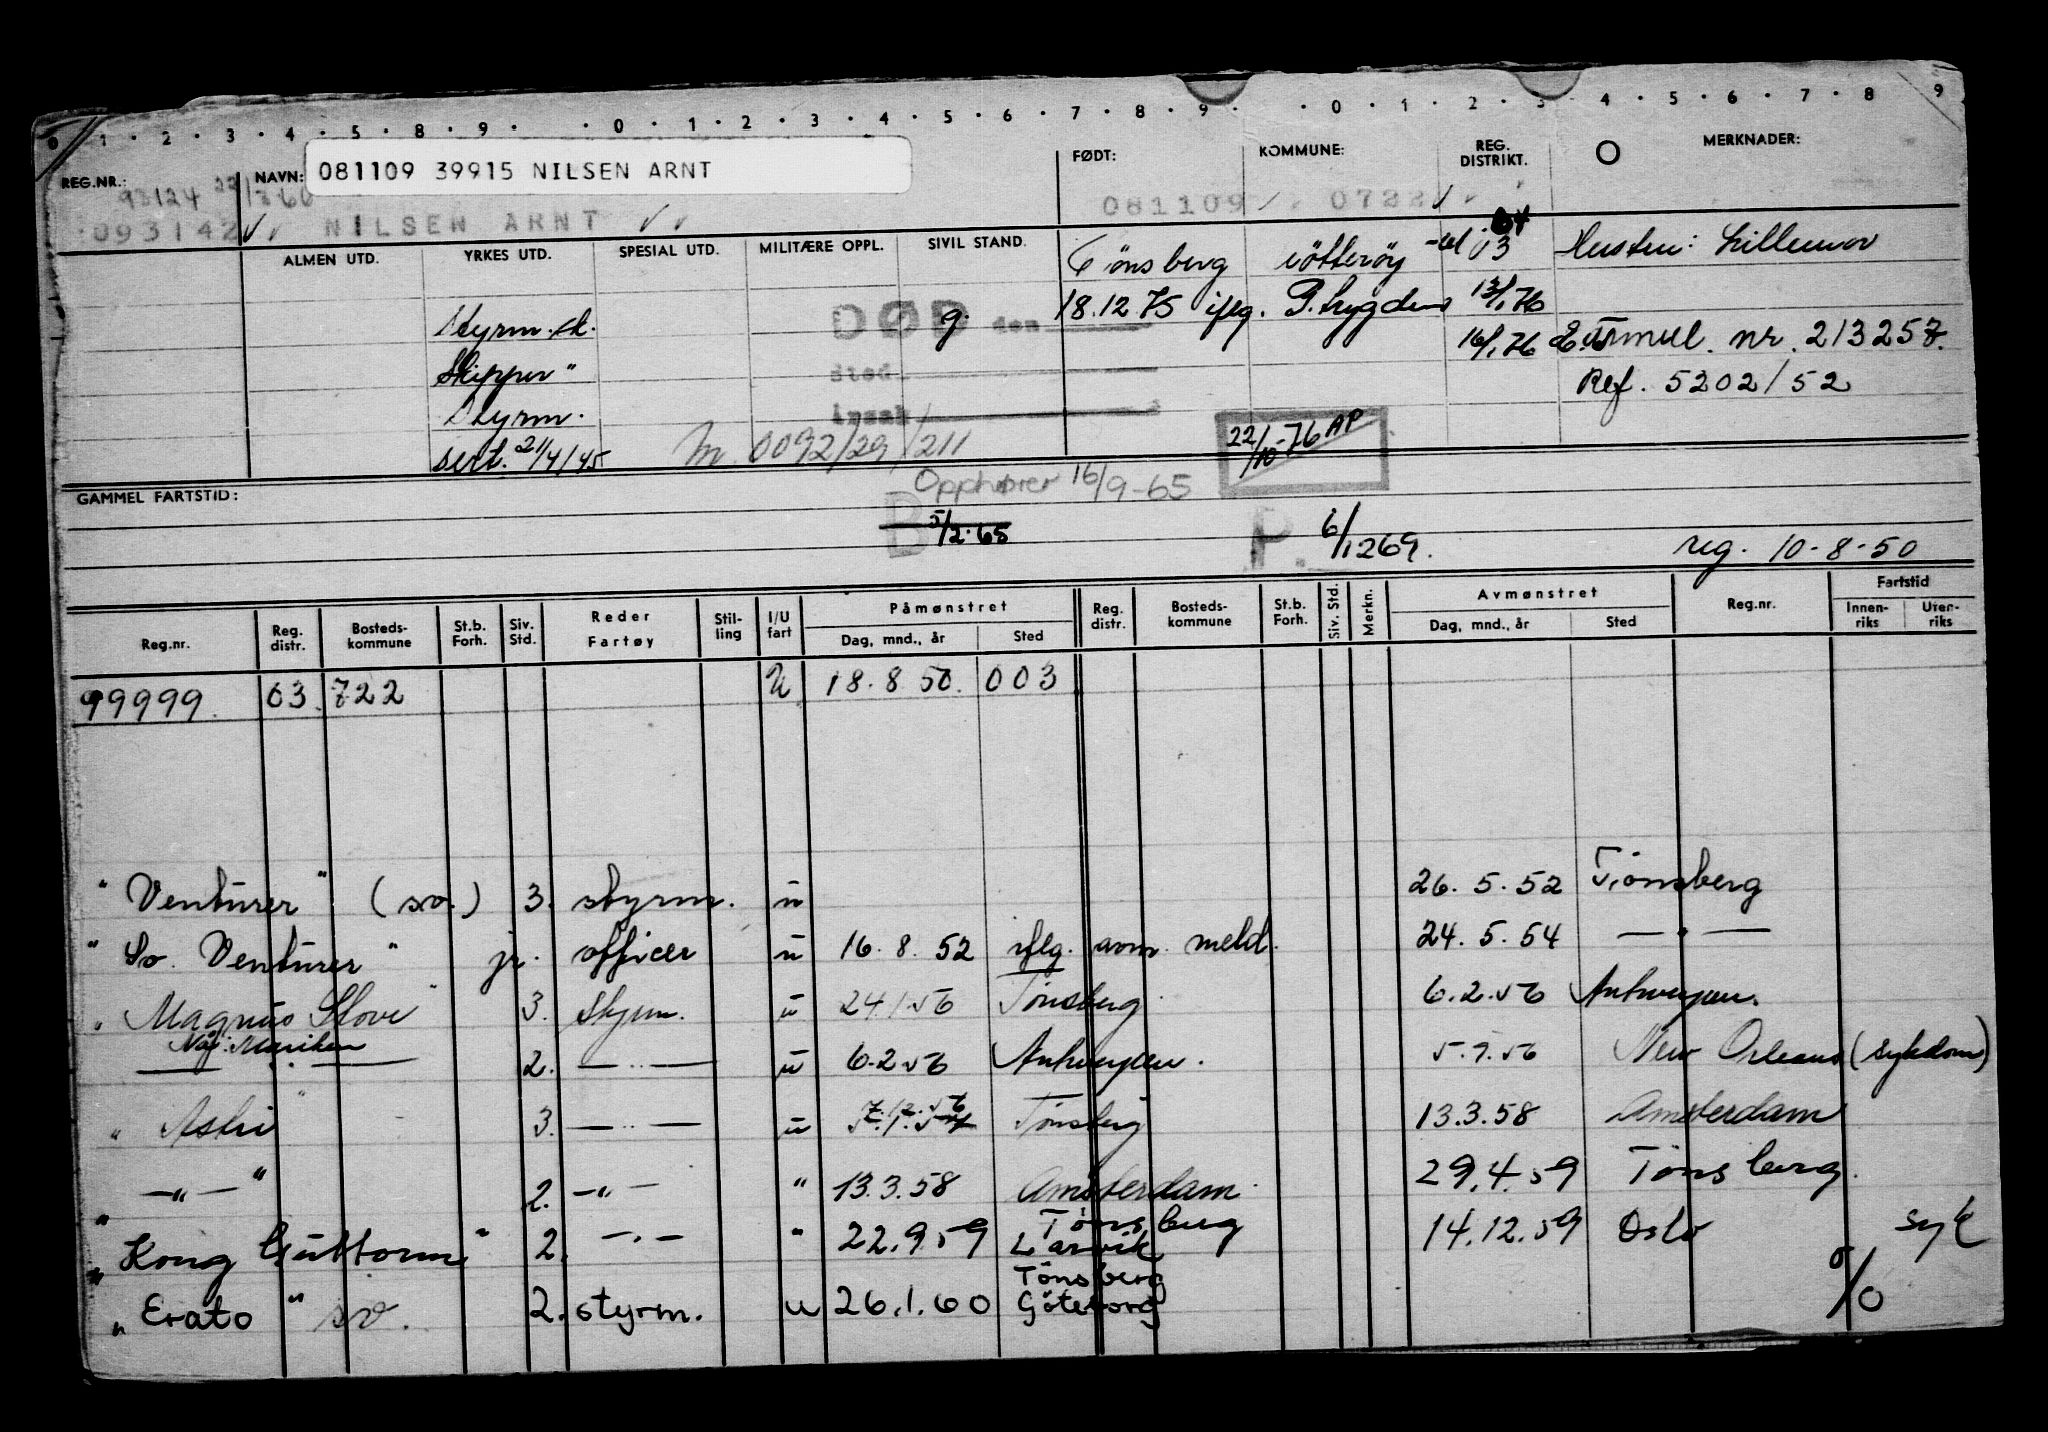 0 1 · 2 · 3 · 4 · 5 · 8 · 9 · · 0 · 1 · 2 · 3 · 4 · 5 · 6 · 7 · 8 · 9 · · 0 · 1 · 2 · 3 · 4 · 5 · 6 · 7 · 8 9
REG.NR.: NAVN: 081109 39915 NILSEN ARNT FØDT: KOMMUNE: REG. DISTRIKT. MERKNADER:
93124 22/
093142 NILSEN ARNT 081109 0722
ALMEN UTD. YRKES UTD. SPESIAL UTD. MILITÆRE OPPL. SIVIL STAND.
Tönsberg nötteröy 03 04 Hustru: Lillemor
Styrm.sk. DØD den g. 18.12.75 iflg. P.trygden 13/1.76
Skipper " sted 16/1.76 Formul. nr. 213257.
Styrm. årsak Ref. 5202/52
sert. 21/4/45 M. 0092/29/211 22/10-76 AP
GAMMEL FARTSTID: Opphører 16/9-65
B 5/2-65 P. 6/1269. reg. 10-8-50
Reg.nr. Reg. distr. Bosteds- kommune St.b. Forh. Siv. Std. Reder Fartøy Stil- ling I/U fart Påmønstret Dag, mnd., år Sted Reg. distr. Bosteds- kommune St.b. Forh. Siv. Std. Merkn. Avmønstret Dag, mnd., år Sted Reg.nr. Fartstid Innen- riks Uten- riks
99999. 03 722 U 18.8 50. 003
"Venturer" (sv.) 3. styrm. u 26.5.52 Tönsberg
"Sv. Venturer" jr. officer u 16.8.52 iflg. avm. meld. 24.5.54 — " —
"Magnus Slove" 3. styrm. u 24.1.56 Tönsberg 6.2.56 Antwerpen.
Nå: Mariken
— " — 2. — " — u 6.2.56 Antwerpen. 5.9.56 New Orleans (sykdom)
" " 3. — " — u 7.12.56 Tönsberg 13.3.58 Amsterdam
— " — " 2. — " — " 13.3.58 Amsterdam 29.4.59 Tönsberg.
"Kong Guttorm" 2. — " — " 22.9.59 Tönsberg Larvik 14.12.59 Oslo syk
"Erato" sv. 2. styrm. u 26.1.60 Tönsberg Göteborg